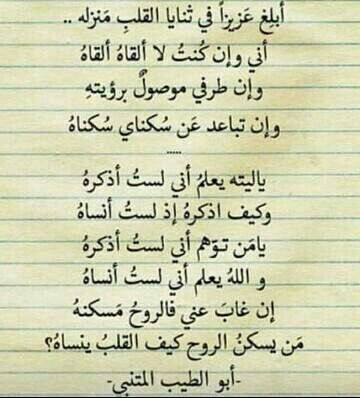 أبلِغ عَزيزاً في ثنايا القلبِ مَنزله ..
أني وإن كُنتُ لا ألقاهُ ألقاهُ
وإن طرفي موصولٌ برؤيتهِ
وإن تباعد عَن سُكناي سُكناهُ
.....
ياليته يعلمُ أني لستُ أذكرهُ
وكيف اذكرهُ إذ لستُ أنساهُ
يامَن توّهم أني لستُ أذكرهُ
و اللهُ يعلم أني لستُ أنساهُ
إن غابَ عني فالروحُ مَسكنهُ
مَن يسكنُ الروح كيف القلبُ ينساهُ؟
-أبو الطيب المتنبي-